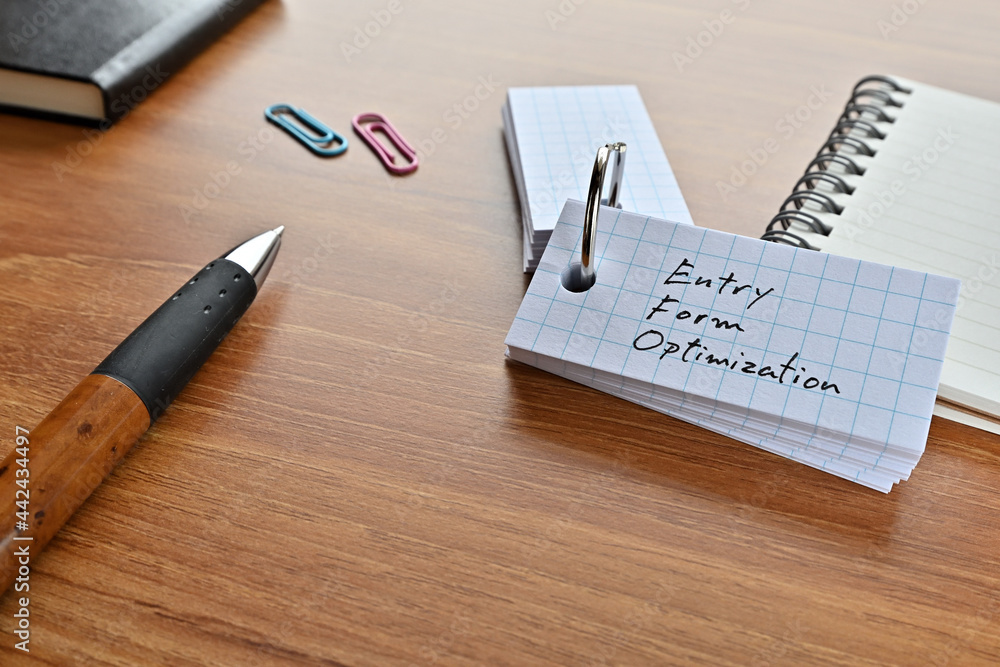 Entry
Form
Optimization
Adobe Stock | #442434497